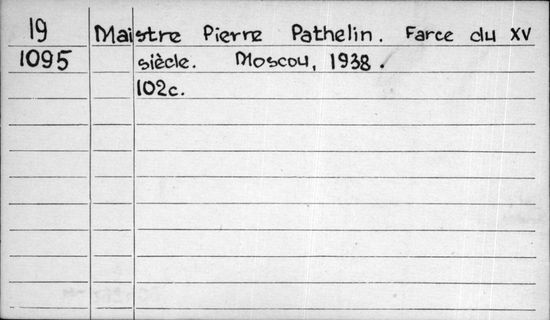 19 Maistre Pierre Pathelin. Farce du XV
1095 siècle. Moscou, 1938.
102c.